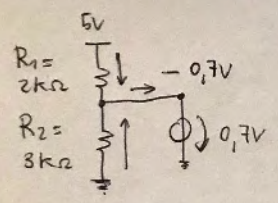 5V
R₁=
2kΩ
- 0,7V
R₂=
3kΩ
0,7V